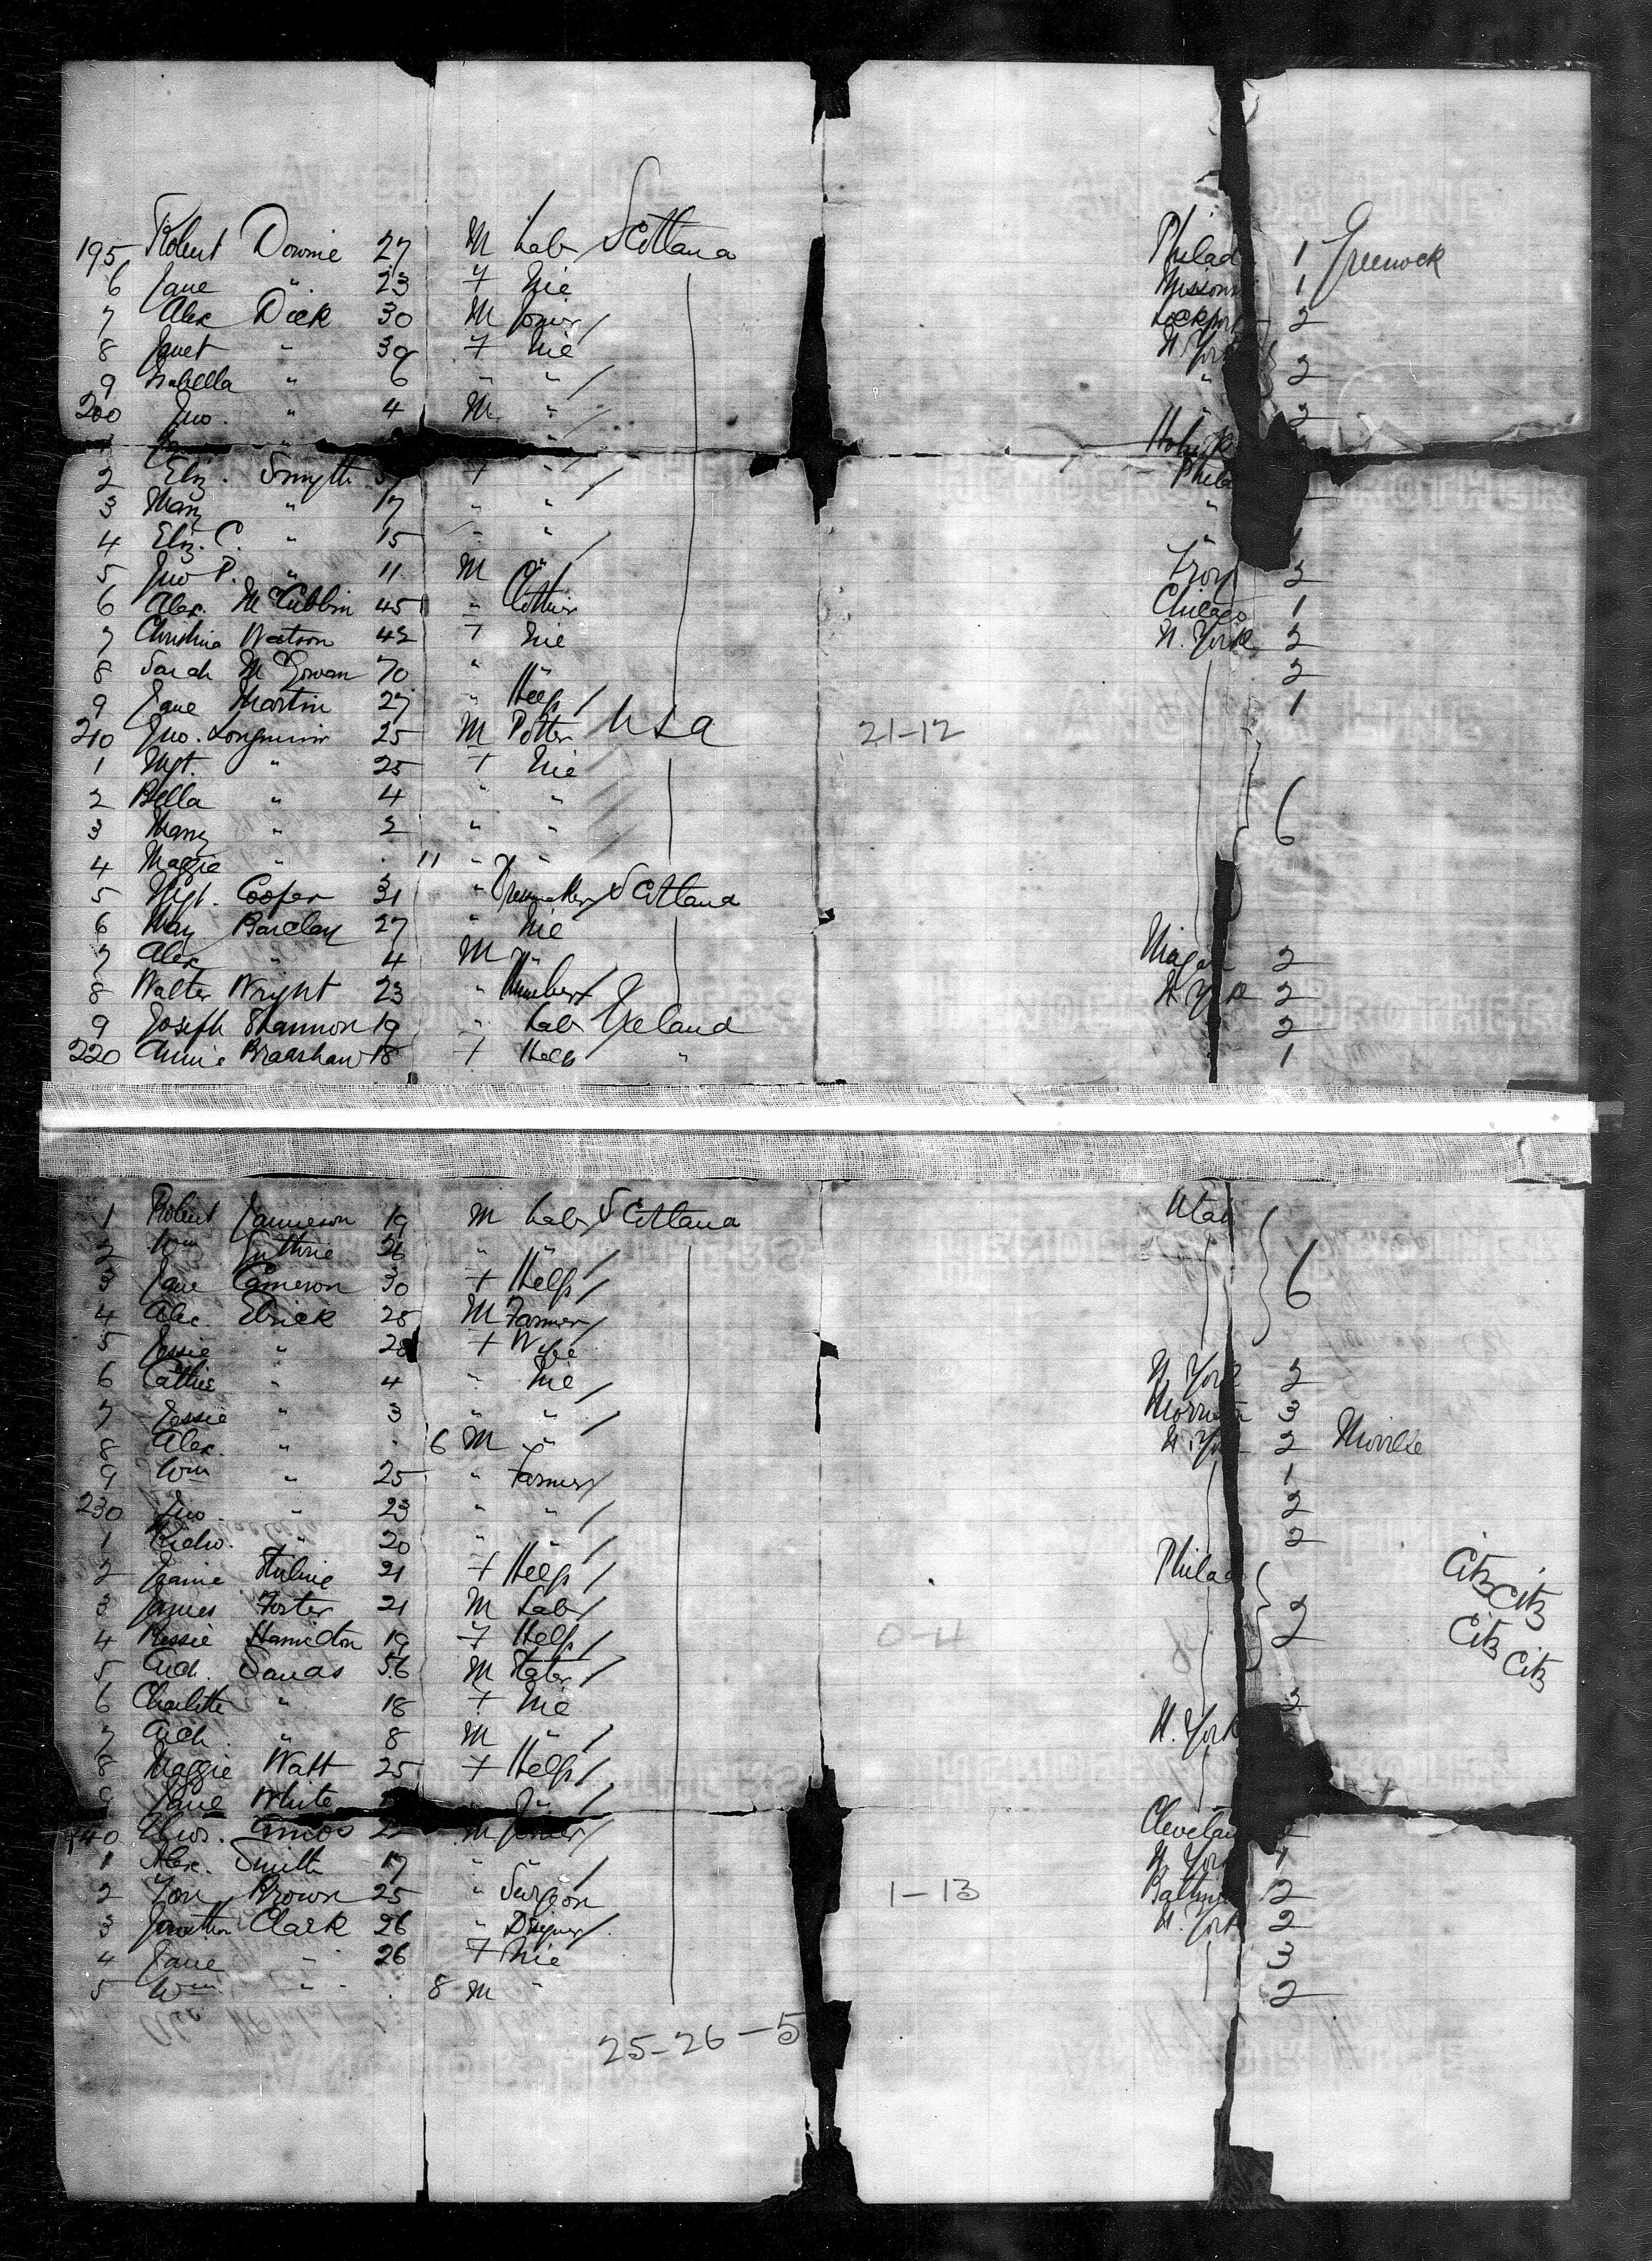 195 Robert Downie 27 M Lab Scotland Philad 1 Greenock
6 Jane " 23 F Nie Missouri 1
7 Alex Dick 30 M Joiner / Lockport 2
8 Janet " 39 F Nie N. York
9 Isabella " 6 " " / " 2
200 Jno. " 4 M " 2
" "
2 Eliz. Smyth F " / Phila
3 Mary " 17 " " "
4 Eliz. C. " 15 " " / "
5 Jno P. " 11 M " Troy 2
6 Alex. McCubbin 45 " Clothier Chicago 1
7 Christina Watson 42 F Nie N. York 2
8 Sarah McGowan 70 " " 2
9 Jane Martin 27 " Help / 1
210 Jno. Longmuir 25 M Potter USA 21-12
1 Mgt. " 25 F Nie
2 Bella " 4 " "
3 Mary " 2 " " 6
4 Maggie " . 11 " "
5 Mgt. Cooper 31 " Dressmaker / Scotland
6 May Barclay 27 " Nie
7 Alex " 4 M " 2
8 Walter Wright 23 " Plumber / N. York 2
9 Joseph Shannon 19 " Lab Ireland 2
220 Annie Bradshaw 18 F Help " 1
1 Robert Jamieson 19 M Lab Scotland Utah
2 Wm Guthrie 26 " " /
3 Jane Cameron 30 F Help / 6
4 Alex. Elrick 28 M Farmer /
5 Jessie " 28 F Wife
6 Cathie " 4 " Nie / N. York 2
7 Jessie " 3 " " / 3
8 Alex. " . 6 M " N. York 2 Moville
9 Wm " 25 " Farmer / 1
230 Jno. " 23 " " / 2
1 Richd. " 20 " " / 2
2 21 F Help / Philad
3 James Foster 21 M Lab / 2
4 Bessie Hamilton 19 F Help / 0-4
5 Arch. Sands 56 M Slater /
6 Charlotte " 18 F Nie 2
7 Arch. " 8 M " / N. York
8 Maggie Watt 25 F Help /
9 Jane White " " /
240 Thos. Amos M Joiner / Cleveland
1 Alex. Smith 17 " " / N. York 1
2 Brown 25 " Surgeon 1-13 Baltimore 2
3 Jonathan Clark 26 " / N. York 2
4 Jane " 26 F Nie 3
5 Wm " . 8 M " 2
25-26-5
Citz Citz
Citz Citz